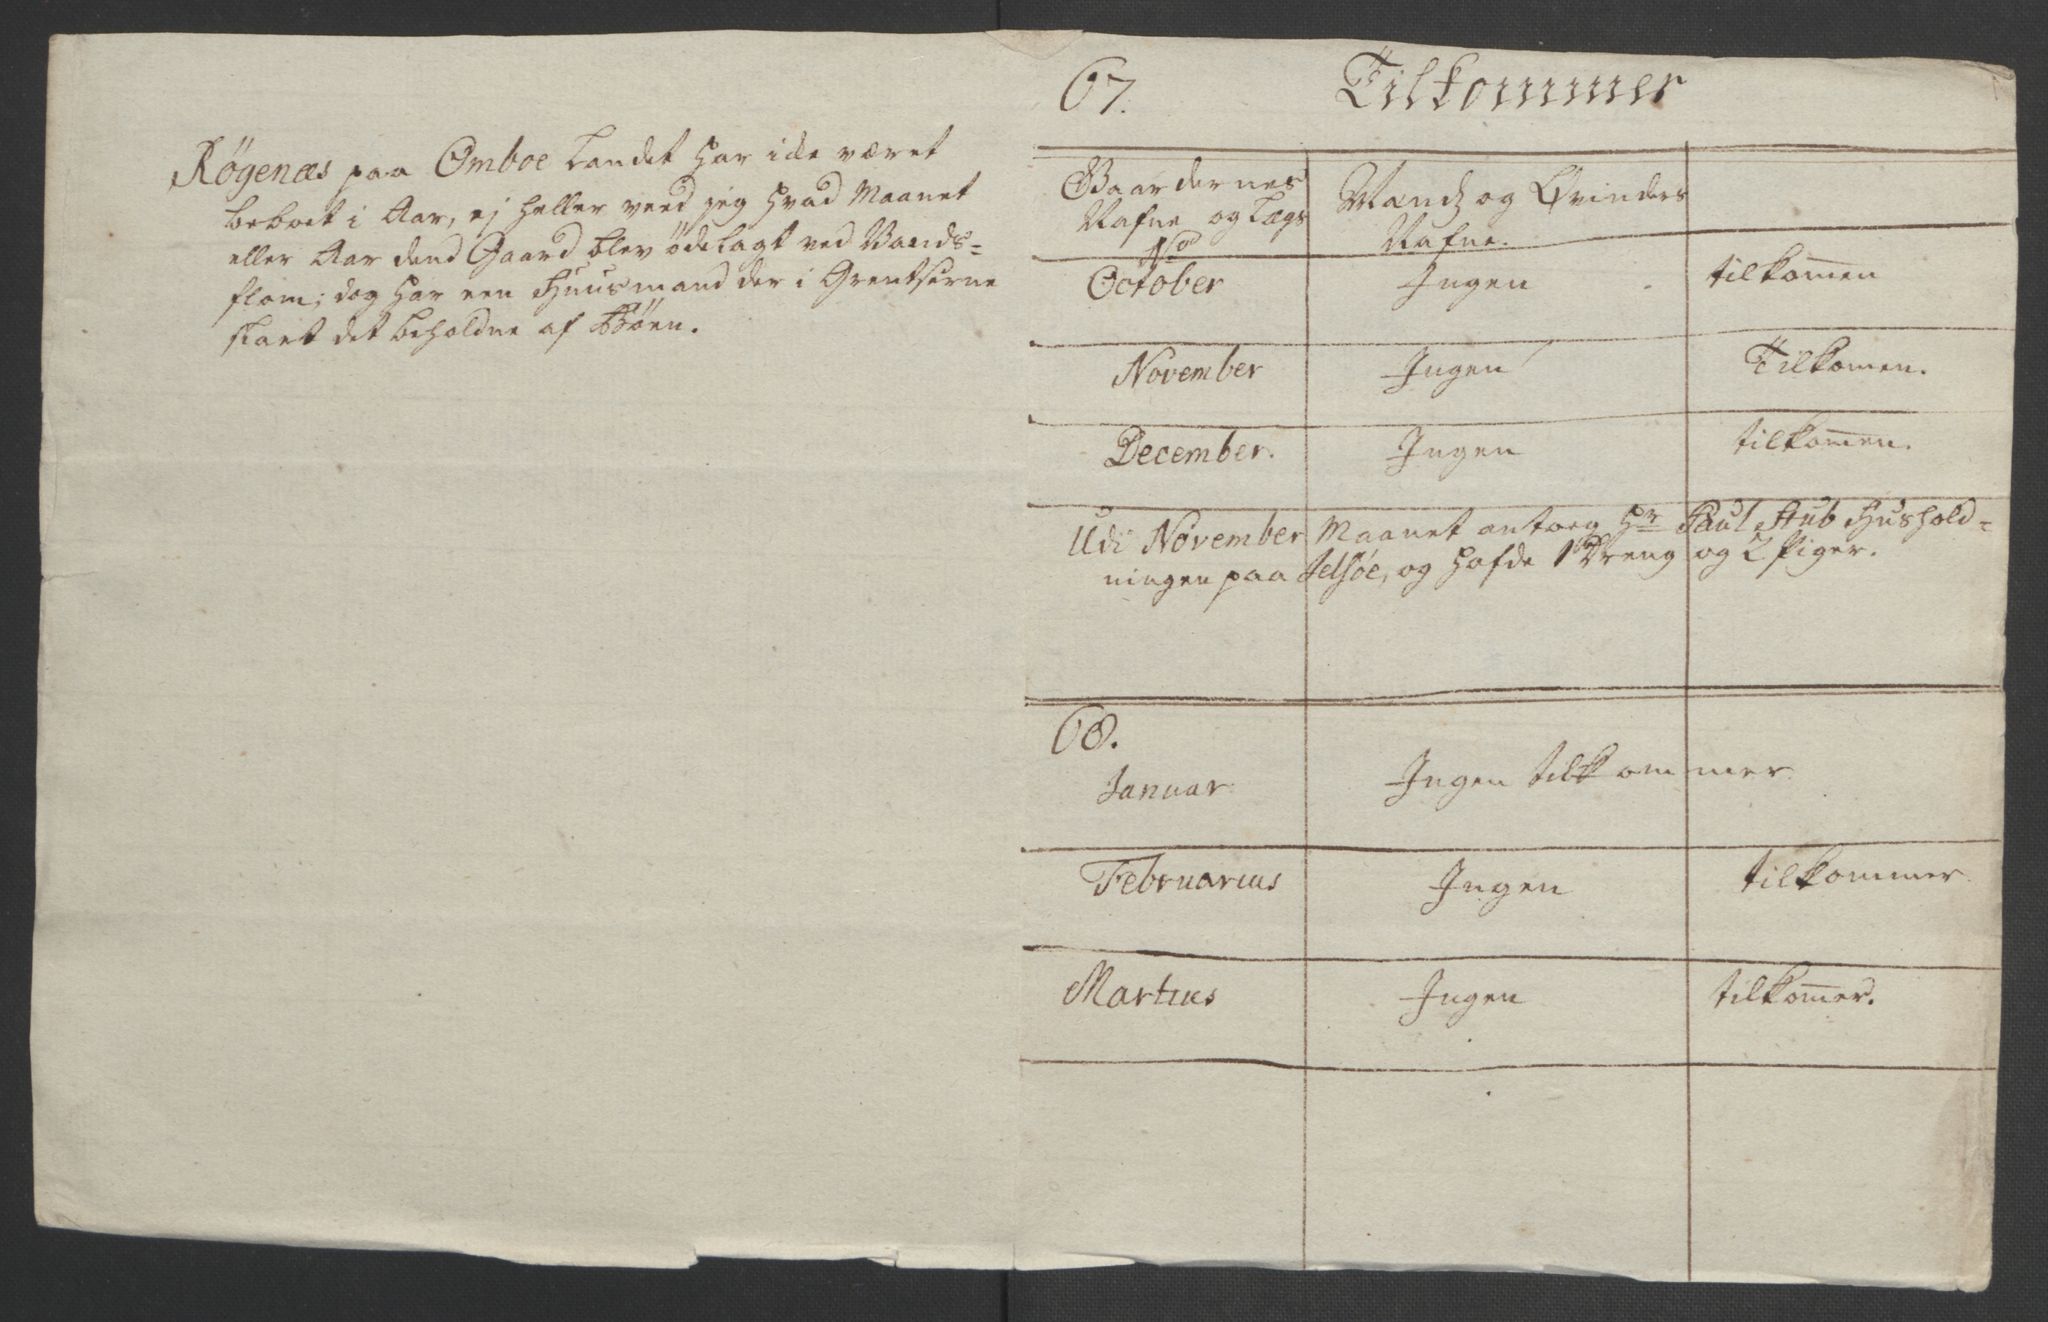 Røgenæs paa Omboe Landet har icke været
beboet i Aar, ej heller veed jeg hvad Maanet
eller Aar dend Gaard blev ødelagt ved Vands-
flom; dog har een Huusmand der i Grentserne
slaaet det beholdne af Bøen.
67. Tilkommer
Gaardernes Nafne og Lægs No
Mands og Qvinders Nafne.
October Ingen tilkommen
November Ingen Tilkommen.
December. Ingen tilkommen.
Udi November Maanet antoeg Hr Paul Stub Hushold=
ningen paa Jelsøe, og hafde 1 Dreng og 2 Piger.
68.
Januar Ingen tilkommer.
Februarius Ingen tilkommer
Martius Ingen tilkommer.